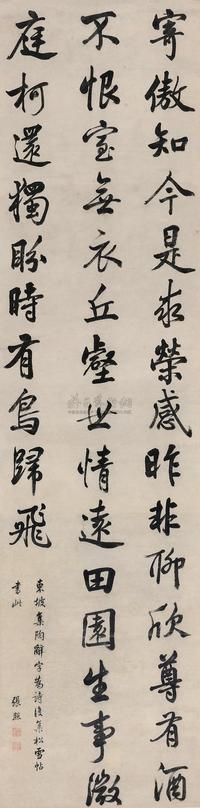 寄傲知今是求榮感昨非聊欣尊有酒
不恨室無衣丘壑世情遠田園生事微
庭柯還獨盼時有鳥歸飛
東坡集陶辭字為詩復集松雪帖
書此 張照